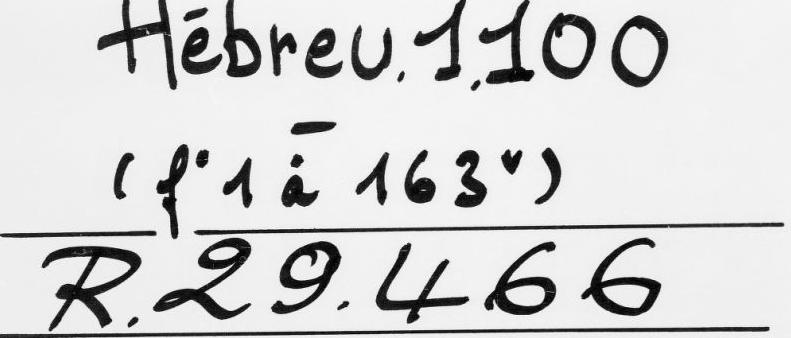 Hébreu. 1.100
—
(f° 1 à 163 v)
R. 29.466